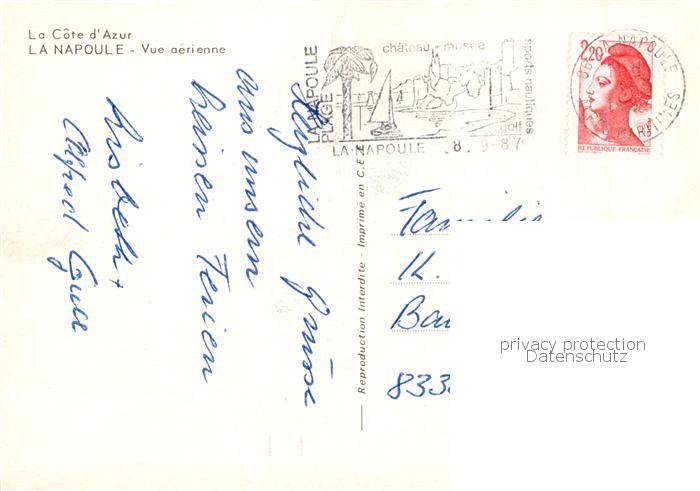 La Côte d'Azur
LA NAPOULE - Vue aérienne
LA NAPOULE
PLAGE
château - musée
sports nautiques
golf
LA NAPOULE 8.9-87
2,20
LA NAPOULE
ALPES MARITIMES
REPUBLIQUE FRANÇAISE
Herzliche Grüsse
aus unsern
heissen Ferien
Lisbeth +
Alfred
Reproduction Interdite - Imprimé en C.E.E.
Familie
K.
833
privacy protection
Datenschutz